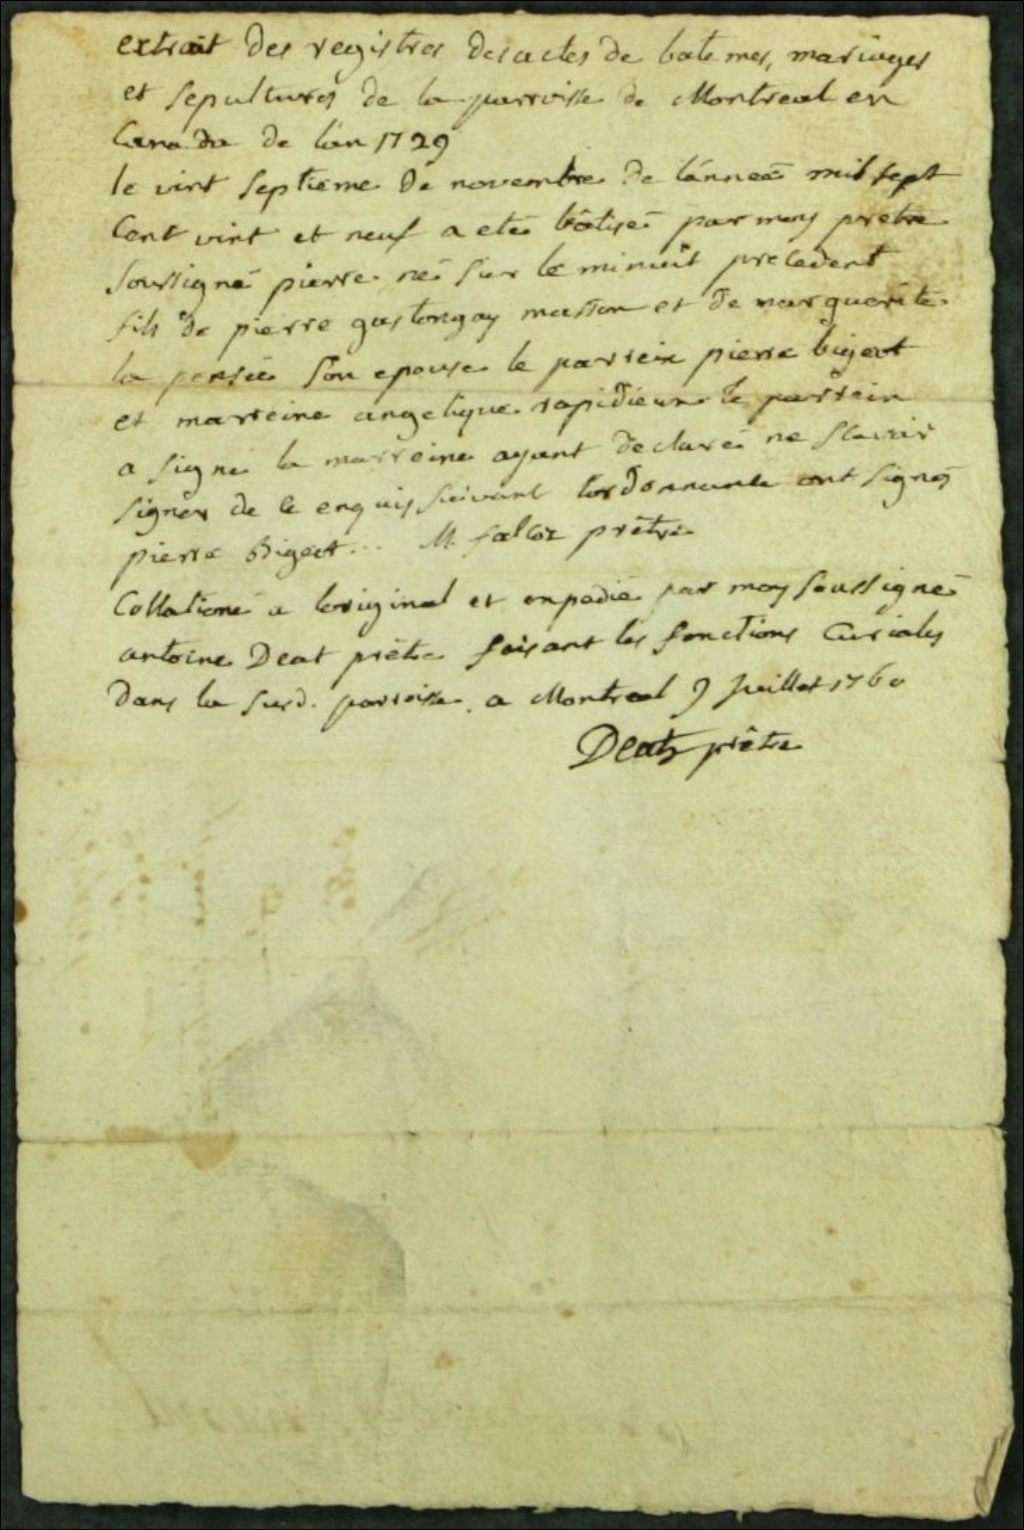 extrait des registres des actes de batemes, mariages
et sepultures de la parroisse de Montreal en
Canada de l'an 1729
le vint septieme de novembre de l'anneé mil sept
Cent vint et neuf a eté bâtisé par moy pretre
soussigné pierre né sur le minuit precedent
fils de pierre gastongay masson et de marguerite
la pensée son epouse le parrein pierre bigeot
et marreine angelique rapidieux le parrein
a signé la marreine ayant declaré ne sçavoir
signer de ce enquis suivant l'ordonnance ont signés
pierre Bigeot... M. falcoz prêtre
Collationé a l'original et expedié par moy soussigné
antoine Deat prêtre faisant les fonctions Curiales
dans la susd. parroisse. a Montreal 9 Juillet 1760
Deat prêtre